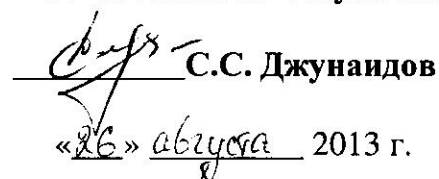 С.С. Джунаидов
«26» августа 2013 г.